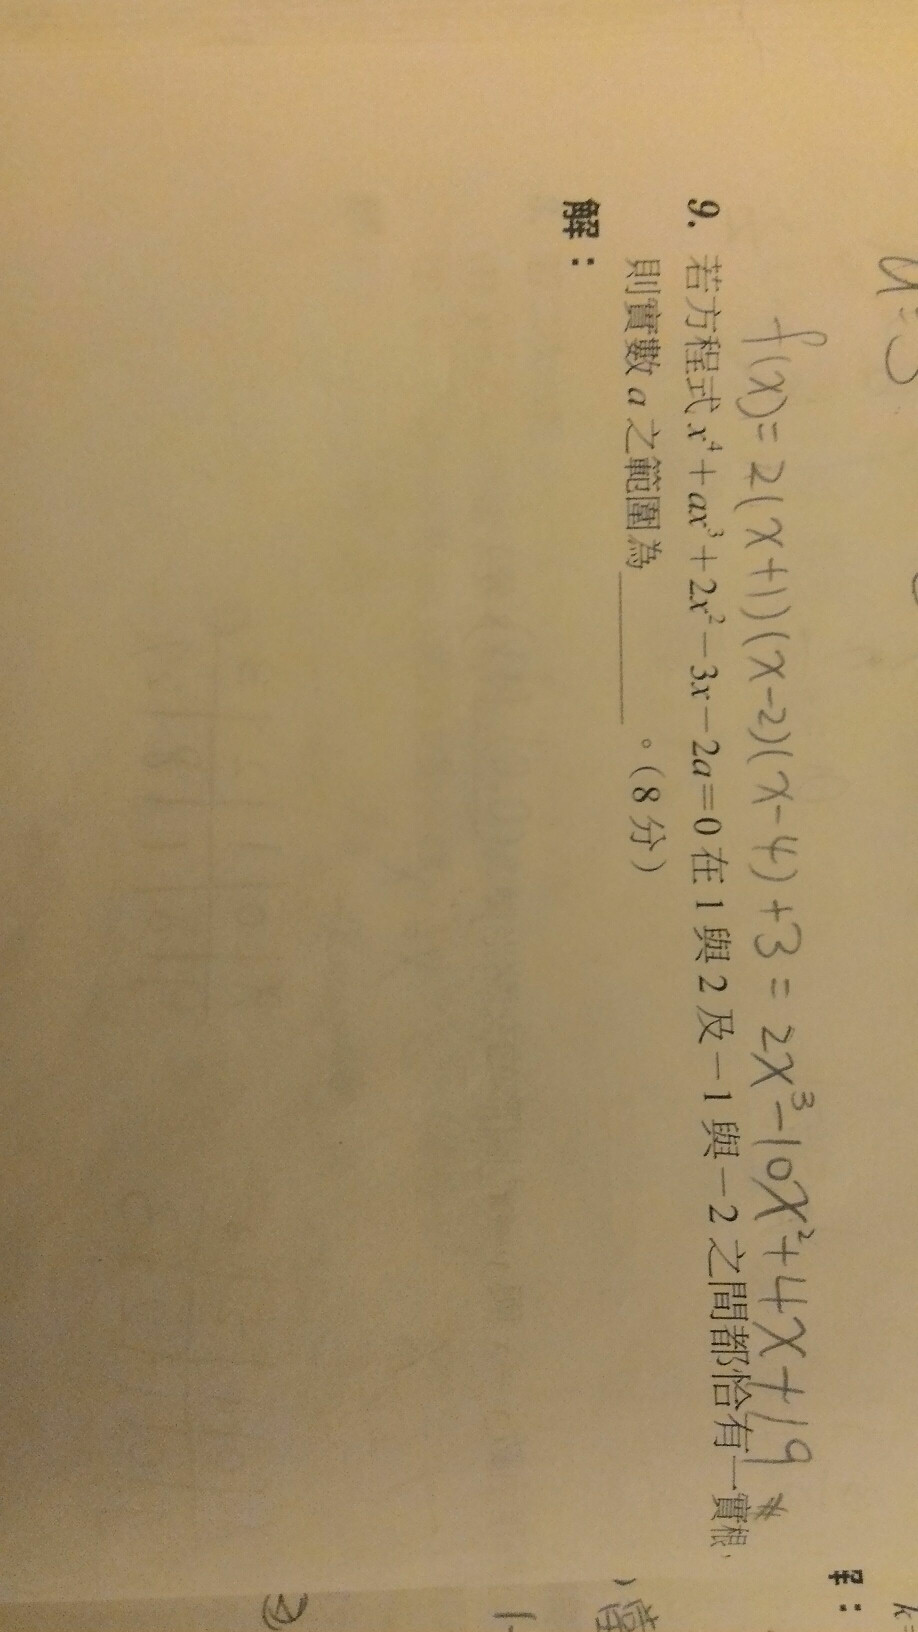 f(x)=2(x+1)(x-2)(x-4)+3=2x³-10x²+4x+19 #
9. 若方程式 x⁴+ax³+2x²-3x-2a=0 在 1 與 2 及 -1 與 -2 之間都恰有一實根,
則實數 a 之範圍為______。(8 分)
解: